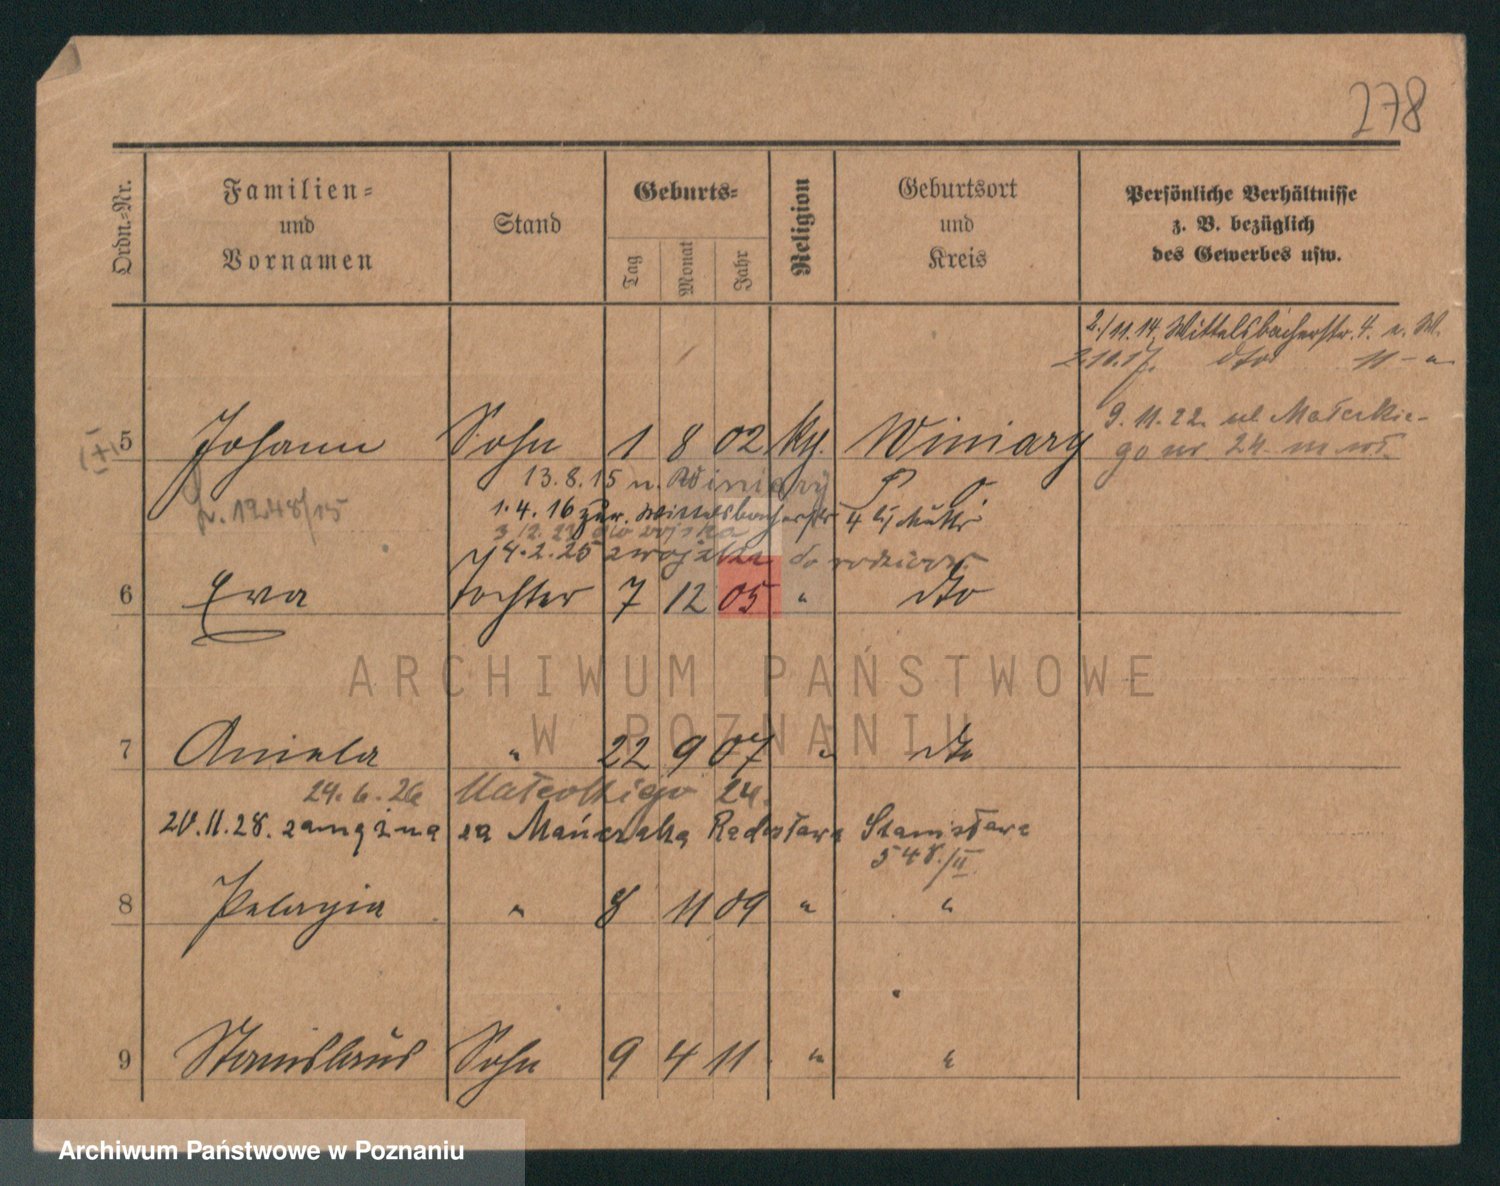 278
Ordn.-Nr.
Familien-
und
Vornamen
Stand
Geburts-
Tag
Monat
Jahr
Religion
Geburtsort
und
Kreis
Persönliche Verhältnisse
z. B. bezüglich
des Gewerbes usw.
2./11.14, Wittelsbacherstr. 4.
2.10.17. dto 11
9.11.22. ul Małeckie-
go nr. 24.
5 Johann Sohn 1 8 02 Winiary
13.8.15 n. Winiary
1.4.16 zur. Wittelsbacherstr 4
do wojska
4.2.25 z wojska do rodziców
6 Eva Tochter 7 12 05 " dto
7 Aniela " 22 9 07 " dto
24.6.26 Małeckiego 24.
20.11.28. zamężna za Radosława Stanisława
548./II
8 Pelagia " 8 11 09 " "
9 Stanislaus Sohn 9 4 11 " "
ARCHIWUM PAŃSTWOWE
W POZNANIU
Archiwum Państwowe w Poznaniu